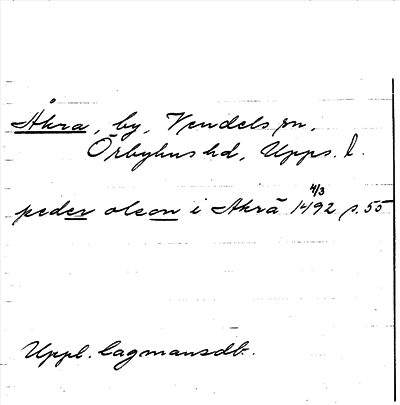 Åkra, by, Vendels sn,
Örbyhus hd, Upps. l.
peder olson i Akra 14 4/3 92 s. 55
Uppl. lagmansdb.